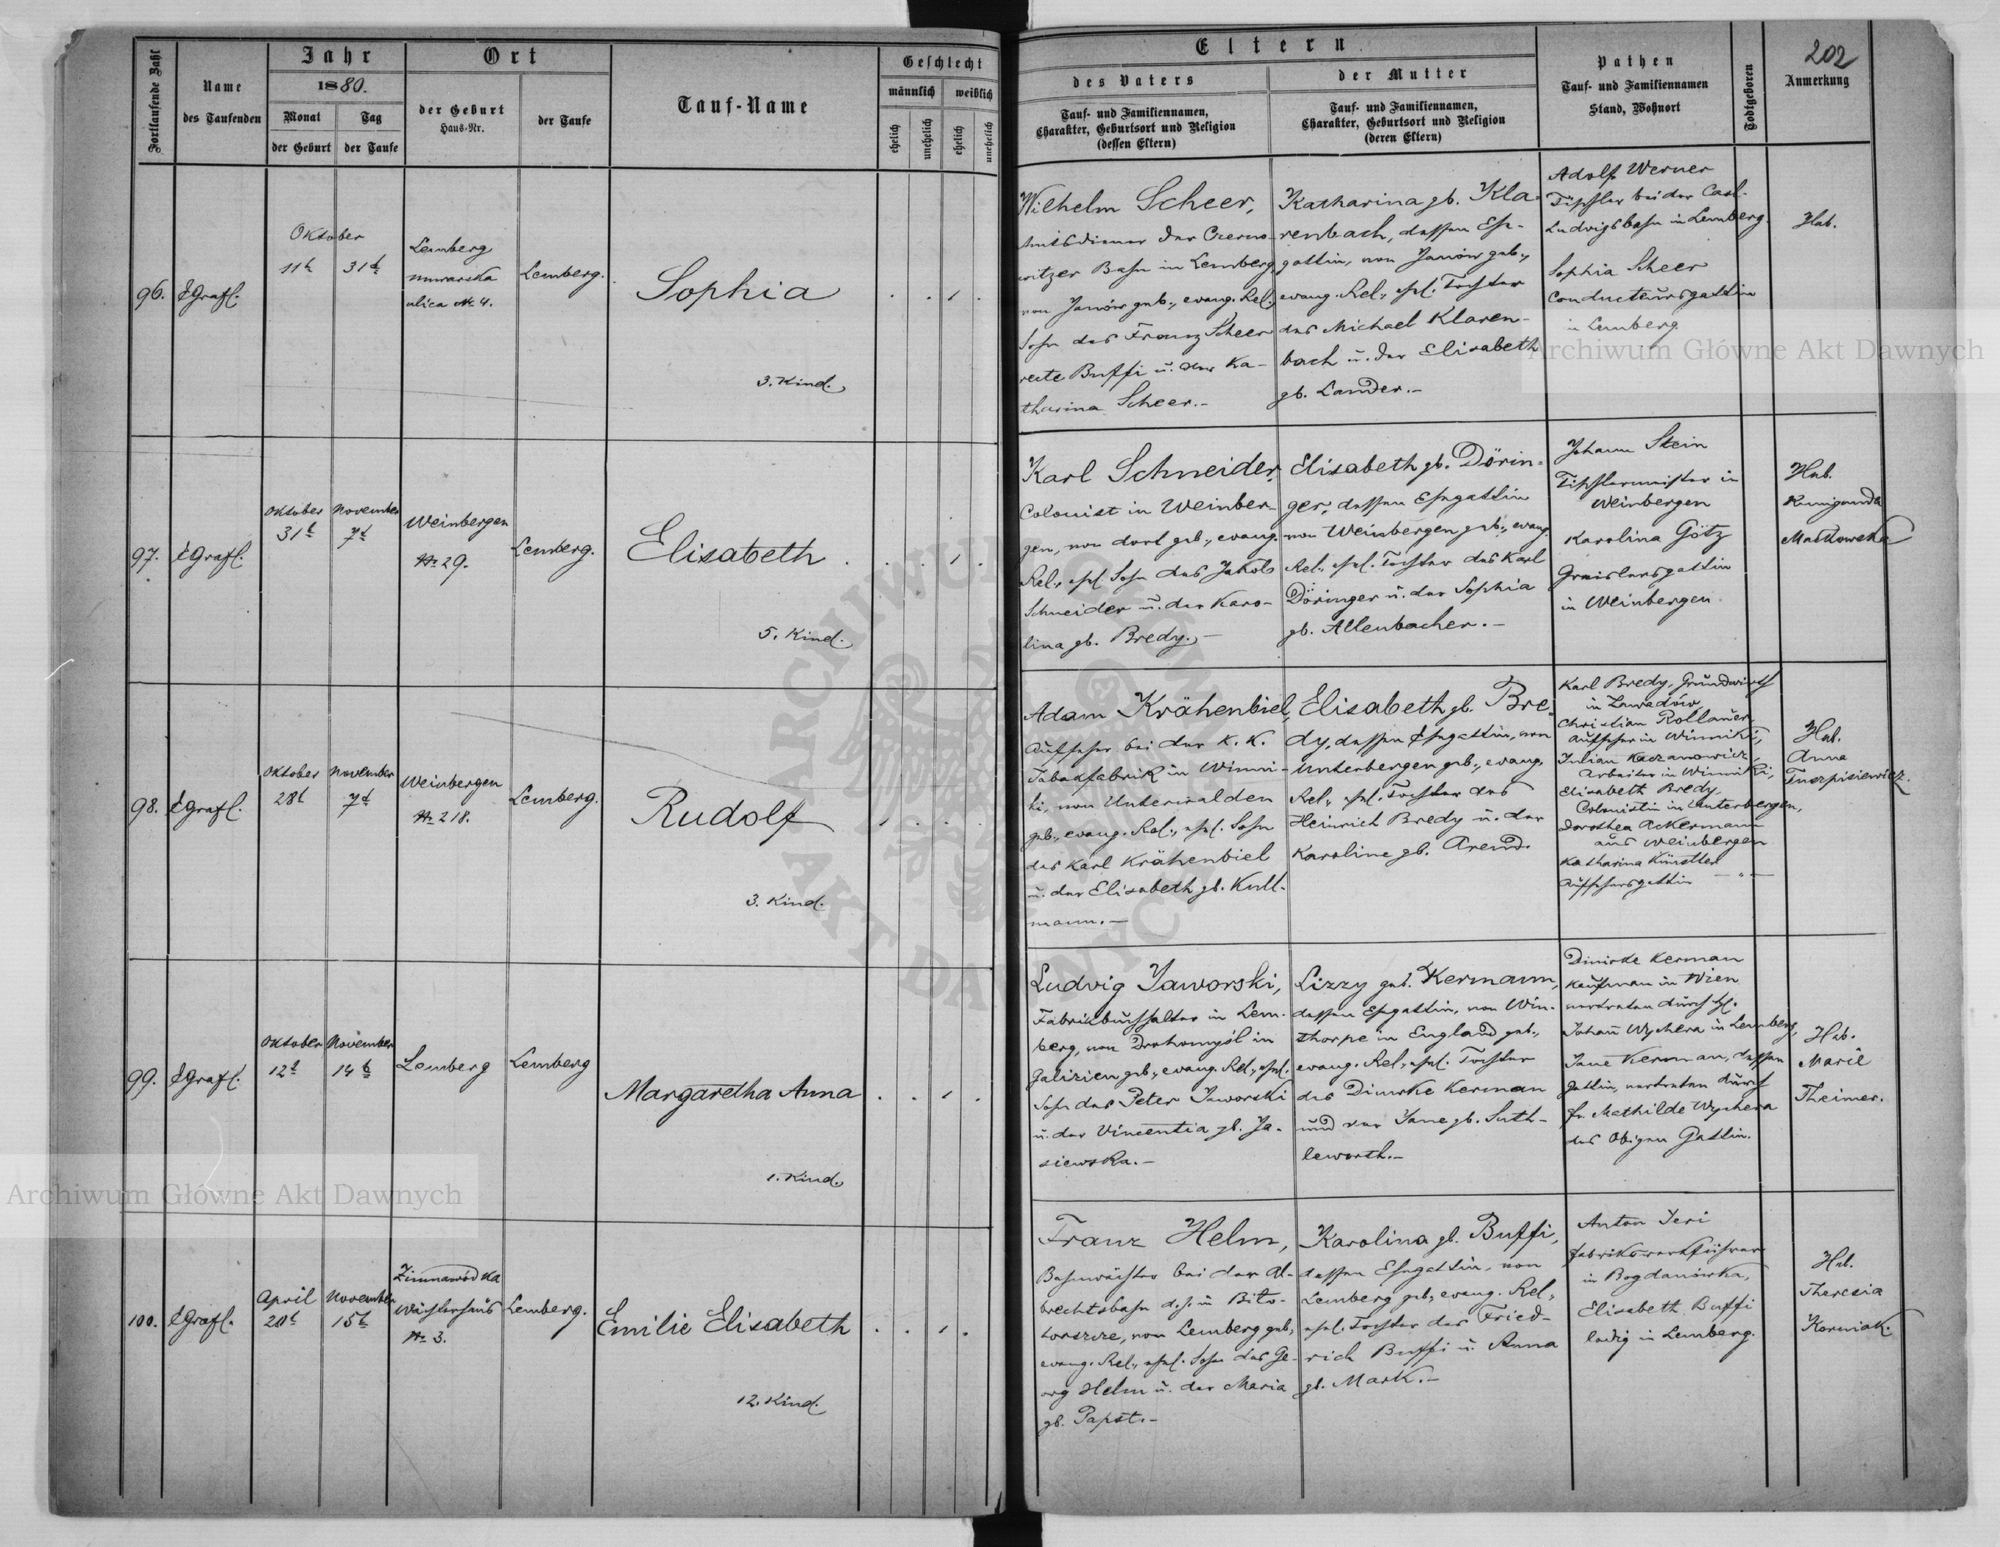 Fortlaufende Zahl
Name
des Taufenden
Jahr
1880.
Monat
der Geburt
Tag
der Taufe
Ort
der Geburt
Haus-Nr.
der Taufe
Tauf-Name
Geschlecht
männlich
weiblich
ehelich
unehelich
ehelich
unehelich
Eltern
des Vaters
Tauf- und Familiennamen,
Charakter, Geburtsort und Religion
(dessen Eltern)
der Mutter
Tauf- und Familiennamen,
Charakter, Geburtsort und Religion
(deren Eltern)
Pathen
Tauf- und Familiennamen
Stand, Wohnort
Todtgeboren
202
Anmerkung
96.
Oktober
11t
31t
Lemberg
ulica № 4.
Lemberg.
Sophia
3. Kind.
Wilhelm Scheer,
Amtsdiener der Czerno-
witzer Bahn in Lemberg
von Janów geb., evang. Rel.
Sohn des Franz Scheer
recte Buffi u. der Ka-
tharina Scheer.-
Katharina gb. Kla-
renbach, dessen Ehe-
gattin, von Janów geb.,
evang. Rel., ehel. Tochter
des Michael Klaren-
bach u. der Elisabeth
gb. Lander.-
Adolf Werner
Tischler bei der Carl-
Ludwigsbahn in Lemberg.
Sophia Scheer
Conducteursgattin
in Lemberg
Heb.
97.
Oktober
31t
November
7t
Weinbergen
№ 29.
Lemberg.
Elisabeth
5. Kind.
Karl Schneider,
Colonist in Weinber-
gen, von dort geb., evang.
Rel., ehel. Sohn des Jakob
Schneider u. der Karo-
lina gb. Bredy.-
Elisabeth gb. Dörin-
ger, dessen Ehegattin
von Weinbergen geb., evang.
Rel., ehel. Tochter des Karl
Döringer u. der Sophia
gb. Allenbacher.-
Johann Stein
Tischlermeister in
Weinbergen
Karolina Götz
Greislersgattin
in Weinbergen.
Heb.
Kunigunda
Malkowska
98.
Oktober
28t
November
7t
Weinbergen
№ 218.
Lemberg.
Rudolf
3. Kind.
Adam Krähenbiel,
Aufseher bei der K. K.
Tabakfabrik in Winni-
ki, von Unterwalden
geb., evang. Rel., ehel. Sohn
des Karl Krähenbiel
u. der Elisabeth gb. Kull-
mann.-
Elisabeth gb. Bre-
dy, dessen Ehegattin, von
Unterbergen geb., evang.
Rel., ehel. Tochter des
Heinrich Bredy u. der
Karoline gb. Arend.
Karl Bredy, Grundwirth
in Zawadów,
Christian Rollauer,
Aufseher in Winniki,
Julian Kaczanowicz,
Arbeiter in Winniki,
Elisabeth Bredy,
Colonistin in Unterbergen,
Dorothea Ackermann
aus Weinbergen
Katharina Künstler
Aufsehersgattin - " -
Heb.
Anna
99.
Oktober
12t
November
14t
Lemberg
Lemberg
Margaretha Anna
1. Kind.
Ludvig Jaworski,
Fabrikbuchhalter in Lem-
berg, von Drohomyśl in
Galizien geb., evang. Rel., ehel.
Sohn des Peter Jaworski
u. der Vincentia gb. Ja-
siewska.-
Lizzy geb. Kermann,
dessen Ehegattin, von Win-
thorpe in England geb.,
evang. Rel., ehel. Tochter
des Dimoke Kerman
und der Jane gb. Suth-
leworth.-
Dimoke Kerman
Kaufman in Wien
vertreten durch H.
Johann Wychera in Lemberg,
Jane Kerman, dessen
Gattin, vertreten durch
Fr. Mathilde Wychera
des Obigen Gattin.
Heb.
Marie
Theimer.
100.
April
20t
November
15t
Zimnawódka
Wächterhaus
№ 3.
Lemberg.
Emilie Elisabeth
12. Kind.
Franz Helm,
Bahnwächter bei der Al-
brechtsbahn d.h. in Bilo-
horszcze, von Lemberg geb.,
evang. Rel., ehel. Sohn des Ge-
org Helm u. der Maria
gb. Papst.-
Karolina gb. Buffi,
dessen Ehegattin, von
Lemberg geb., evang. Rel.,
ehel. Tochter des Fried-
rich Buffi u Anna
gb. Mark.-
Anton Jeri
Fabrikswerkführer
in Bogdanówka,
Elisabeth Buffi
ledig in Lemberg.
Heb.
Theresia
Korniak.
Archiwum Główne Akt Dawnych
Archiwum Główne Akt Dawnych
ARCHIWUM GŁÓWNE
AKT DAWNYCH